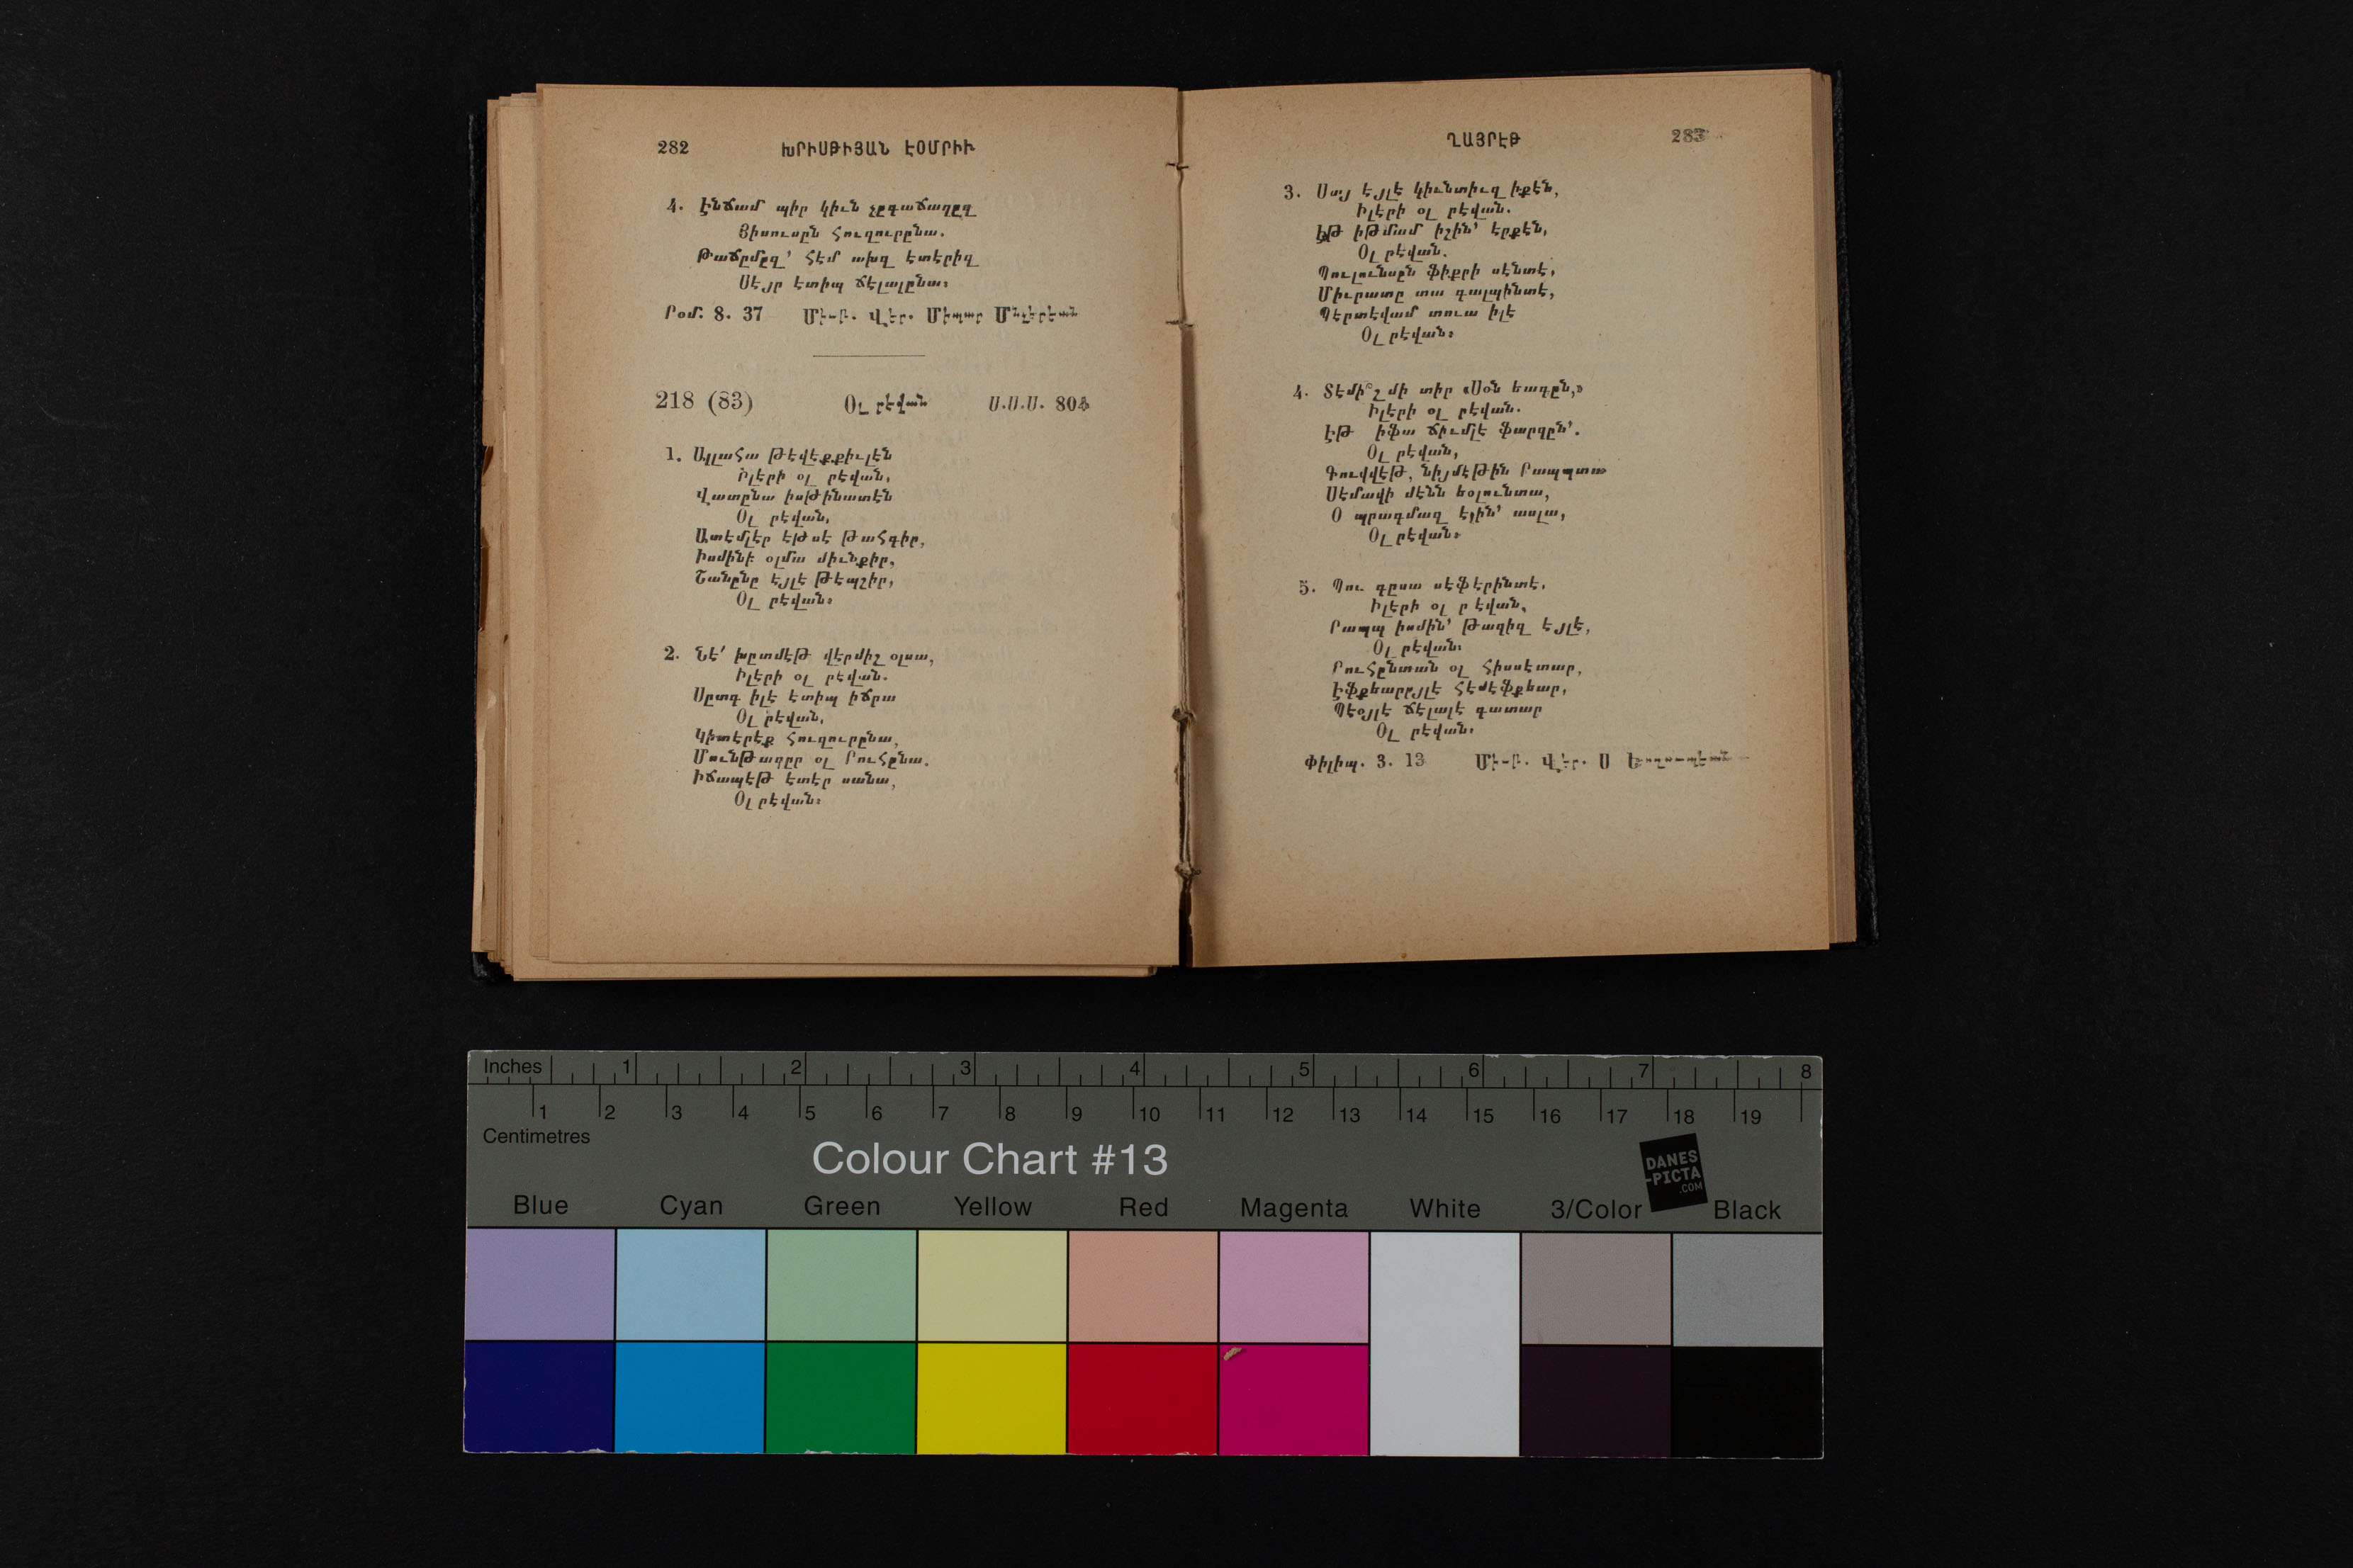 282 ԽՐԻՍԹԻՅԱՆ ԷՕՄՐԻՒ
4. Էնճամ պիր կիւն չըգաճաղըզ
Յիսուսըն Հուզուրընա.
Թաճըմըզ՝ հէմ ախզ ետէրիզ
Սէյր ետիպ ճելալընա։
Րօմ. 8. 37 Միւթ. Վեր. Միպար Մնչերեան
218 (83) Օլ րէվան Ս.Ս.Ս. 804
1. Ալլահա թեվէքքիւլէն
Իլերի օլ րէվան,
Վատընա իսթինատէն
Օլ րէվան,
Ատէմլեր եթսէ թահգիր,
Իսմինէ օլմա միւնքիր,
Շանընը էյլէ թէպշիր,
Օլ րէվան։
2. Նէ՛ խըտմէթ վէրմիշ օլսա,
Իլերի օլ րէվան.
Սըտգ իլէ ետիպ իճրա
Օլ րէվան,
Կիտերէք հուզուրընա,
Մունթազըր օլ Րուհընա.
Իճապէթ ետէր սանա,
Օլ րէվան։
ՂԱՅՐԷԹ 283
3. Սայ էյլէ կիւնտիւզ իքէն,
Իլերի օլ րէվան.
Էթ իթմամ իշին՝ երքէն,
Օլ րէվան.
Պուլունսըն ֆիքրի սէնտէ,
Միւրատը տա գալպինտէ,
Պերտէվամ տուա իլէ
Օլ րէվան։
4. Տէմի՞շ մի տիր «Սօն եազըն,»
Իլերի օլ րէվան.
Էթ իֆա ճիւմլէ ֆարզըն՝.
Օլ րէվան,
Գուվվէթ, նիյմէթին Րապպտա
Սէմավի մէնն եօլունտա,
Օ պրագմազ էլին՝ ասլա,
Օլ րէվան։
5. Պու գըսա սէֆերինտէ,
Իլերի օլ րէվան,
Րապպ իսմին՝ թազիզ էյլէ,
Օլ րէվան։
Րուհընտան օլ հիսսէտար,
Էֆքեարըյլէ հէմէֆքեար,
Պէօյլէ ճելալէ գատար
Օլ րէվան։
Փիլիպ. 3. 13 Միւթ. Վեր. Ս
Inches 1 2 3 4 5 6 7 8
1 2 3 4 5 6 7 8 9 10 11 12 13 14 15 16 17 18 19
Centimetres
Colour Chart #13
DANES
-PICTA
.COM
Blue Cyan Green Yellow Red Magenta White 3/Color Black